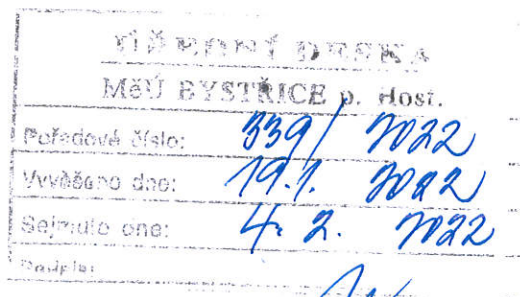 ÚŘEDNÍ DESKA
MěÚ BYSTŘICE p. Host.
Pořadové číslo: 339/ 2022
Vyvěšeno dne: 19.1. 2022
Sejmuto dne: 4. 2. 2022
Podpis: